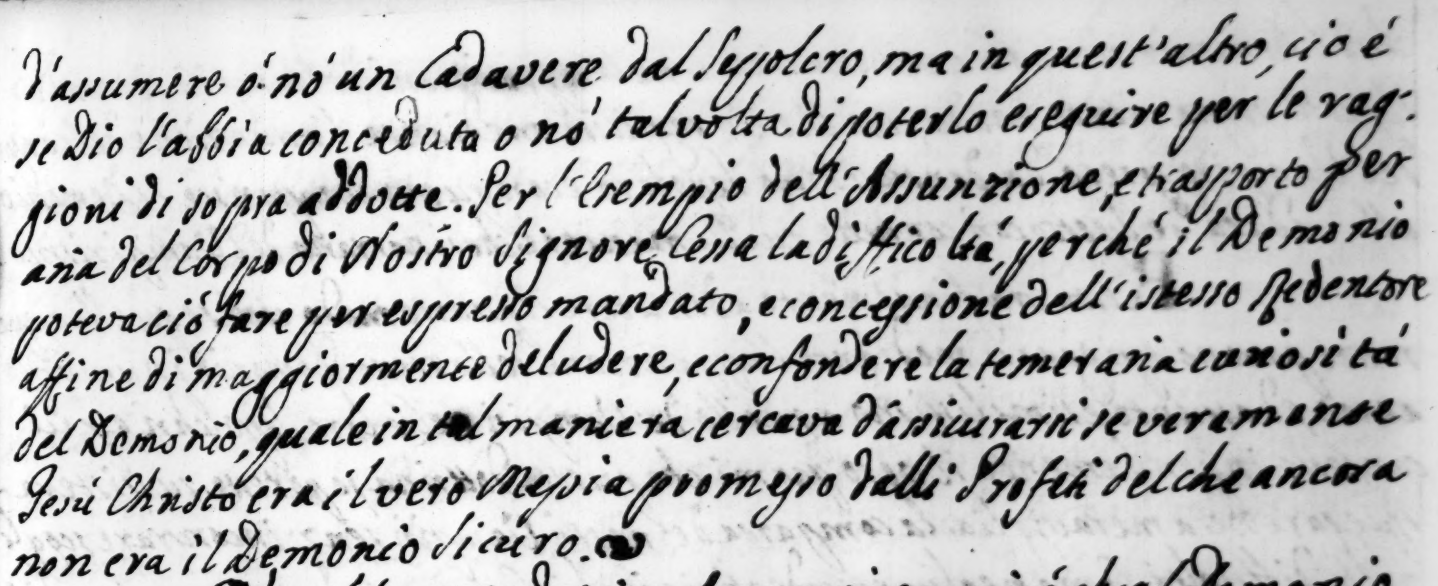 d'assumere ó nó un Cadavere dal Sepolcro, ma in quest'altro, ció é
se Dio l'abbia conceduta o nó talvolta di poterlo eseguire per le rag-
gioni di sopra addotte. Per l'Esempio dell'Assunzione, e trasporto per
aria del Corpo di Nostro Signore Cessa la difficoltá, perché il Demonio
poteva ció fare per espresso mandato, e concessione dell'istesso Redentore
affine di maggiormente deludere, e confondere la temeraria curiositá
del Demonio, quale in tal maniera cercava d'assicurarsi se veramente
Gesú Christo era il vero Messia promesso dalli Profeti del che ancora
non era il Demonio sicuro.